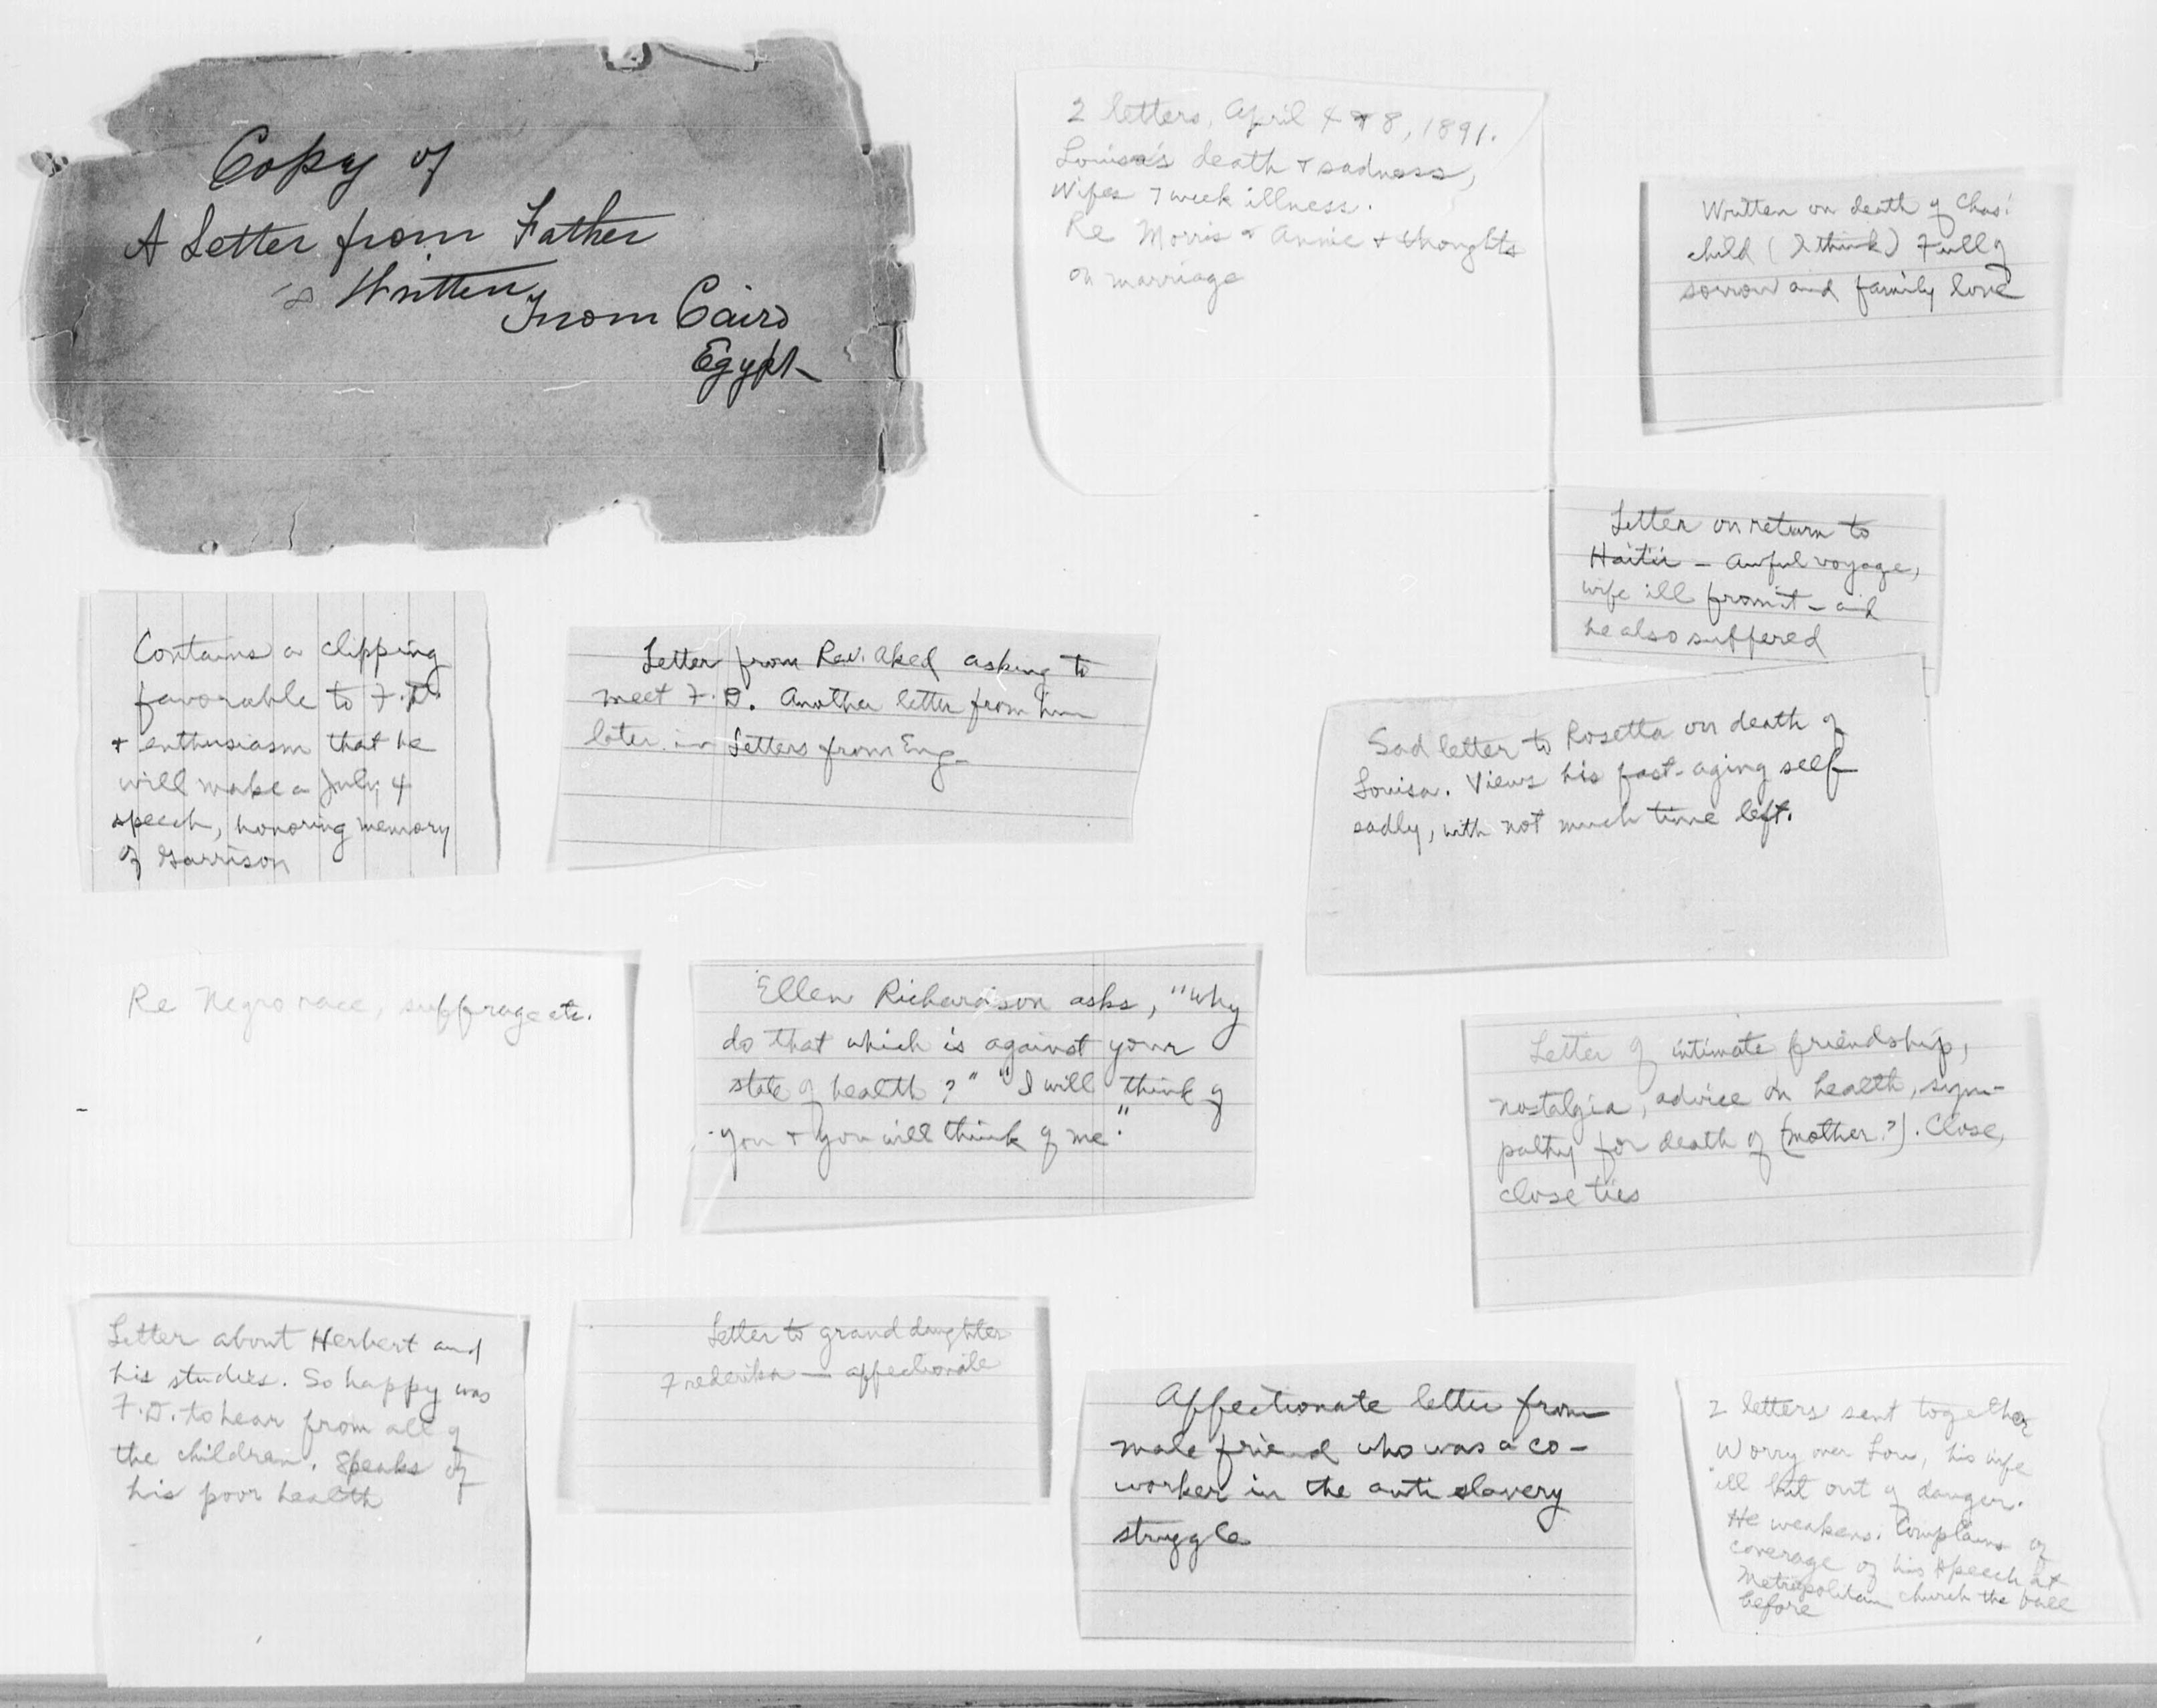 Copy of
A Letter from Father
Written
From Cairo
Egypt
2 letters, April 4 & 8, 1891.
Louisa's death & sadness,
Wifes 7 week illness.
Re Morris & Annie & thoughts
on marriage
Written on death of Chas'
child (I think) Full of
sorrow and family love
Letter on return to
Haitii - Awful voyage,
wife ill from it - and
he also suffered
Contains a clipping
favorable to F.D.
& enthusiasm that he
will make a July 4
speech, honoring memory
of Garrison
Letter from Rev. Aked asking to
meet F.D. Another letter from him
later in Letters from Eng-
Sad letter to Rosetta on death of
Louisa. Views his fast-aging self
sadly, with not much time left.
Re Negro race, suffrage etc.
Ellen Richardson asks, "Why
do that which is against your
state of health?" "I will think of
you & you will think of me."
Letter of intimate friendship,
nostalgia, advice on health, sym-
pathy for death of (mother?). Close,
close ties
Letter about Herbert and
his studies. So happy was
F.D. to hear from all of
the children. Speaks of
his poor health
Letter to grand daughter
Frederika - affectionate
Affectionate letter from
male friend who was a co-
worker in the anti slavery
struggle
2 letters sent together
Worry over Lou, his wife
ill but out of danger.
He weakens. Complains of
coverage of his speech at
Metropolitan church the
before